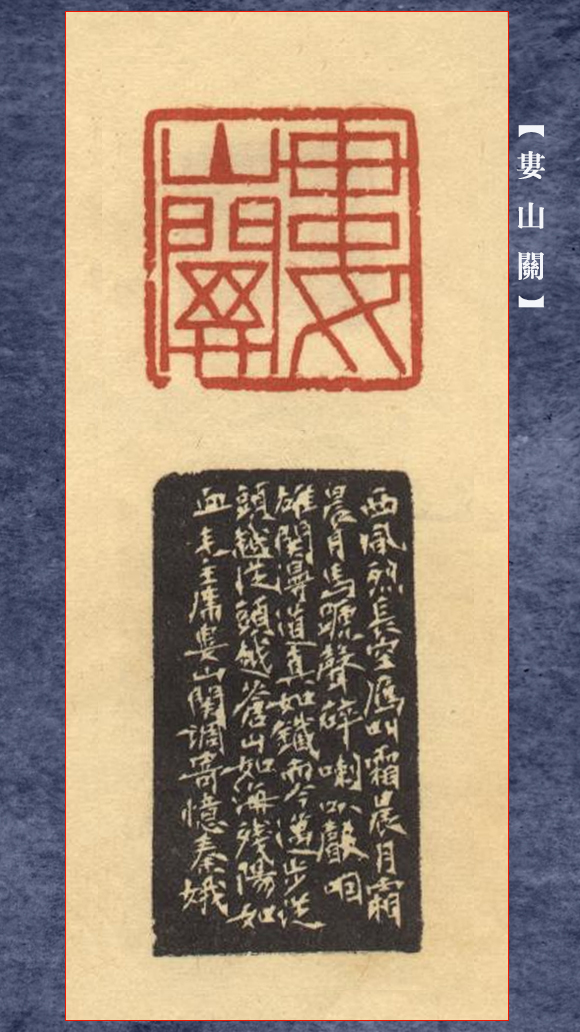 【婁山關】
婁
山關
西風烈長空鴈叫霜晨月霜
晨月馬蹄聲碎喇叭聲咽
雄関漫道真如鐵而今邁步從
頭越從頭越蒼山如海殘陽如
血毛主席婁山関調寄憶秦娥